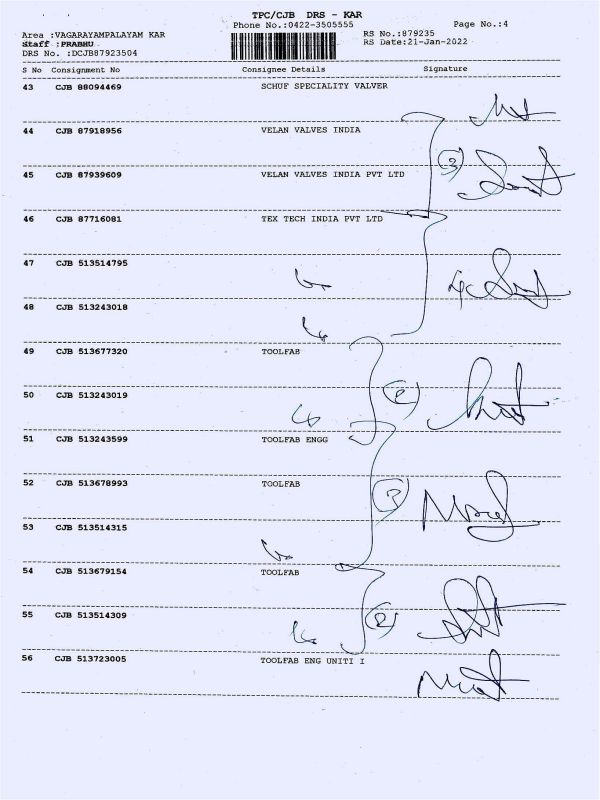 TPC/CJB DRS - KAR
Phone No.:0422-3505555 Page No.:4
Area :VAGARAYAMPALAYAM KAR RS No.:879235
Staff :PRABHU RS Date:21-Jan-2022
DRS No. :DCJB87923504
S No Consignment No Consignee Details Signature
43 CJB 88094469 SCHUF SPECIALITY VALVER
44 CJB 87918956 VELAN VALVES INDIA
3
45 CJB 87939609 VELAN VALVES INDIA PVT LTD
46 CJB 87716081 TEX TECH INDIA PVT LTD
47 CJB 513514795
48 CJB 513243018
49 CJB 513677320 TOOLFAB
50 CJB 513243019
51 CJB 513243599 TOOLFAB ENGG
52 CJB 513678993 TOOLFAB
3
53 CJB 513514315
54 CJB 513679154 TOOLFAB
55 CJB 513514309
56 CJB 513723005 TOOLFAB ENG UNITI I